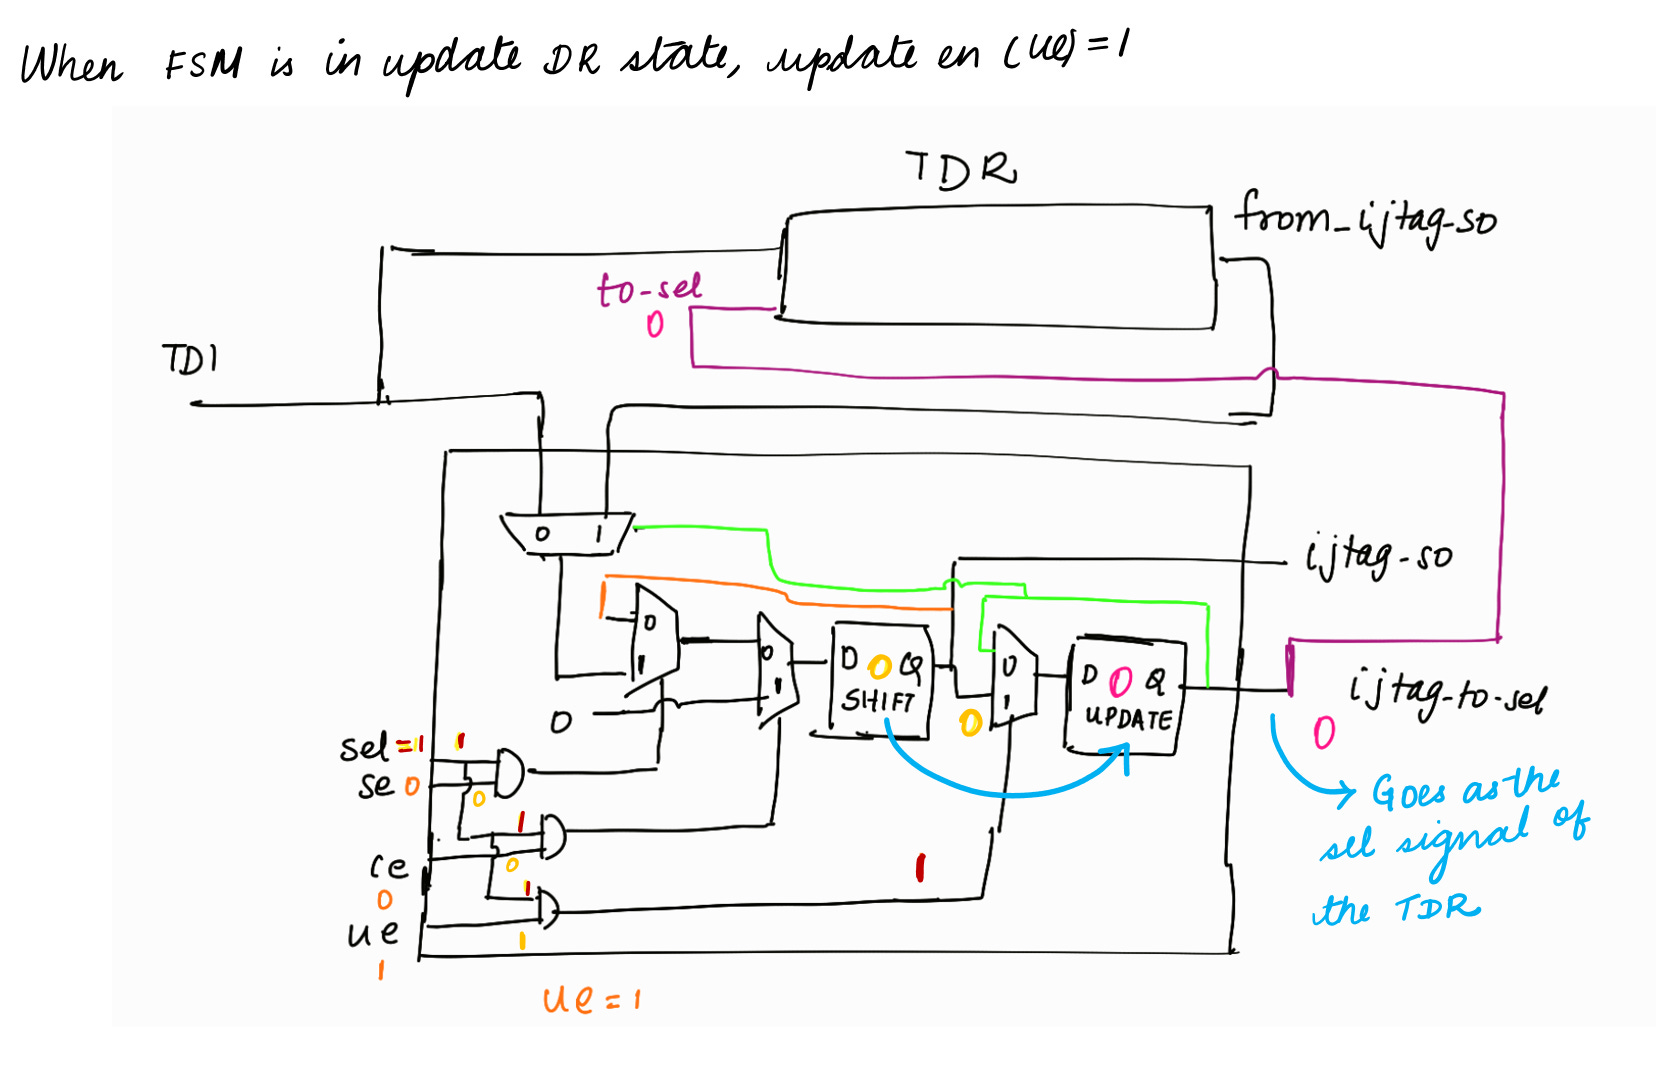 When FSM is in update DR state, update en (ue) = 1
TDR
from_ijtag-so
to-sel
0
TDI
0 1
ijtag-so
0
1
0
1
D 0 Q
SHIFT
0
1
D 0 Q
UPDATE
ijtag-to-sel
0
0
0
sel=1 1
se 0
0
1
ce
0
0
1
1
ue
1
1
ue = 1
Goes as the
sel signal of
the TDR